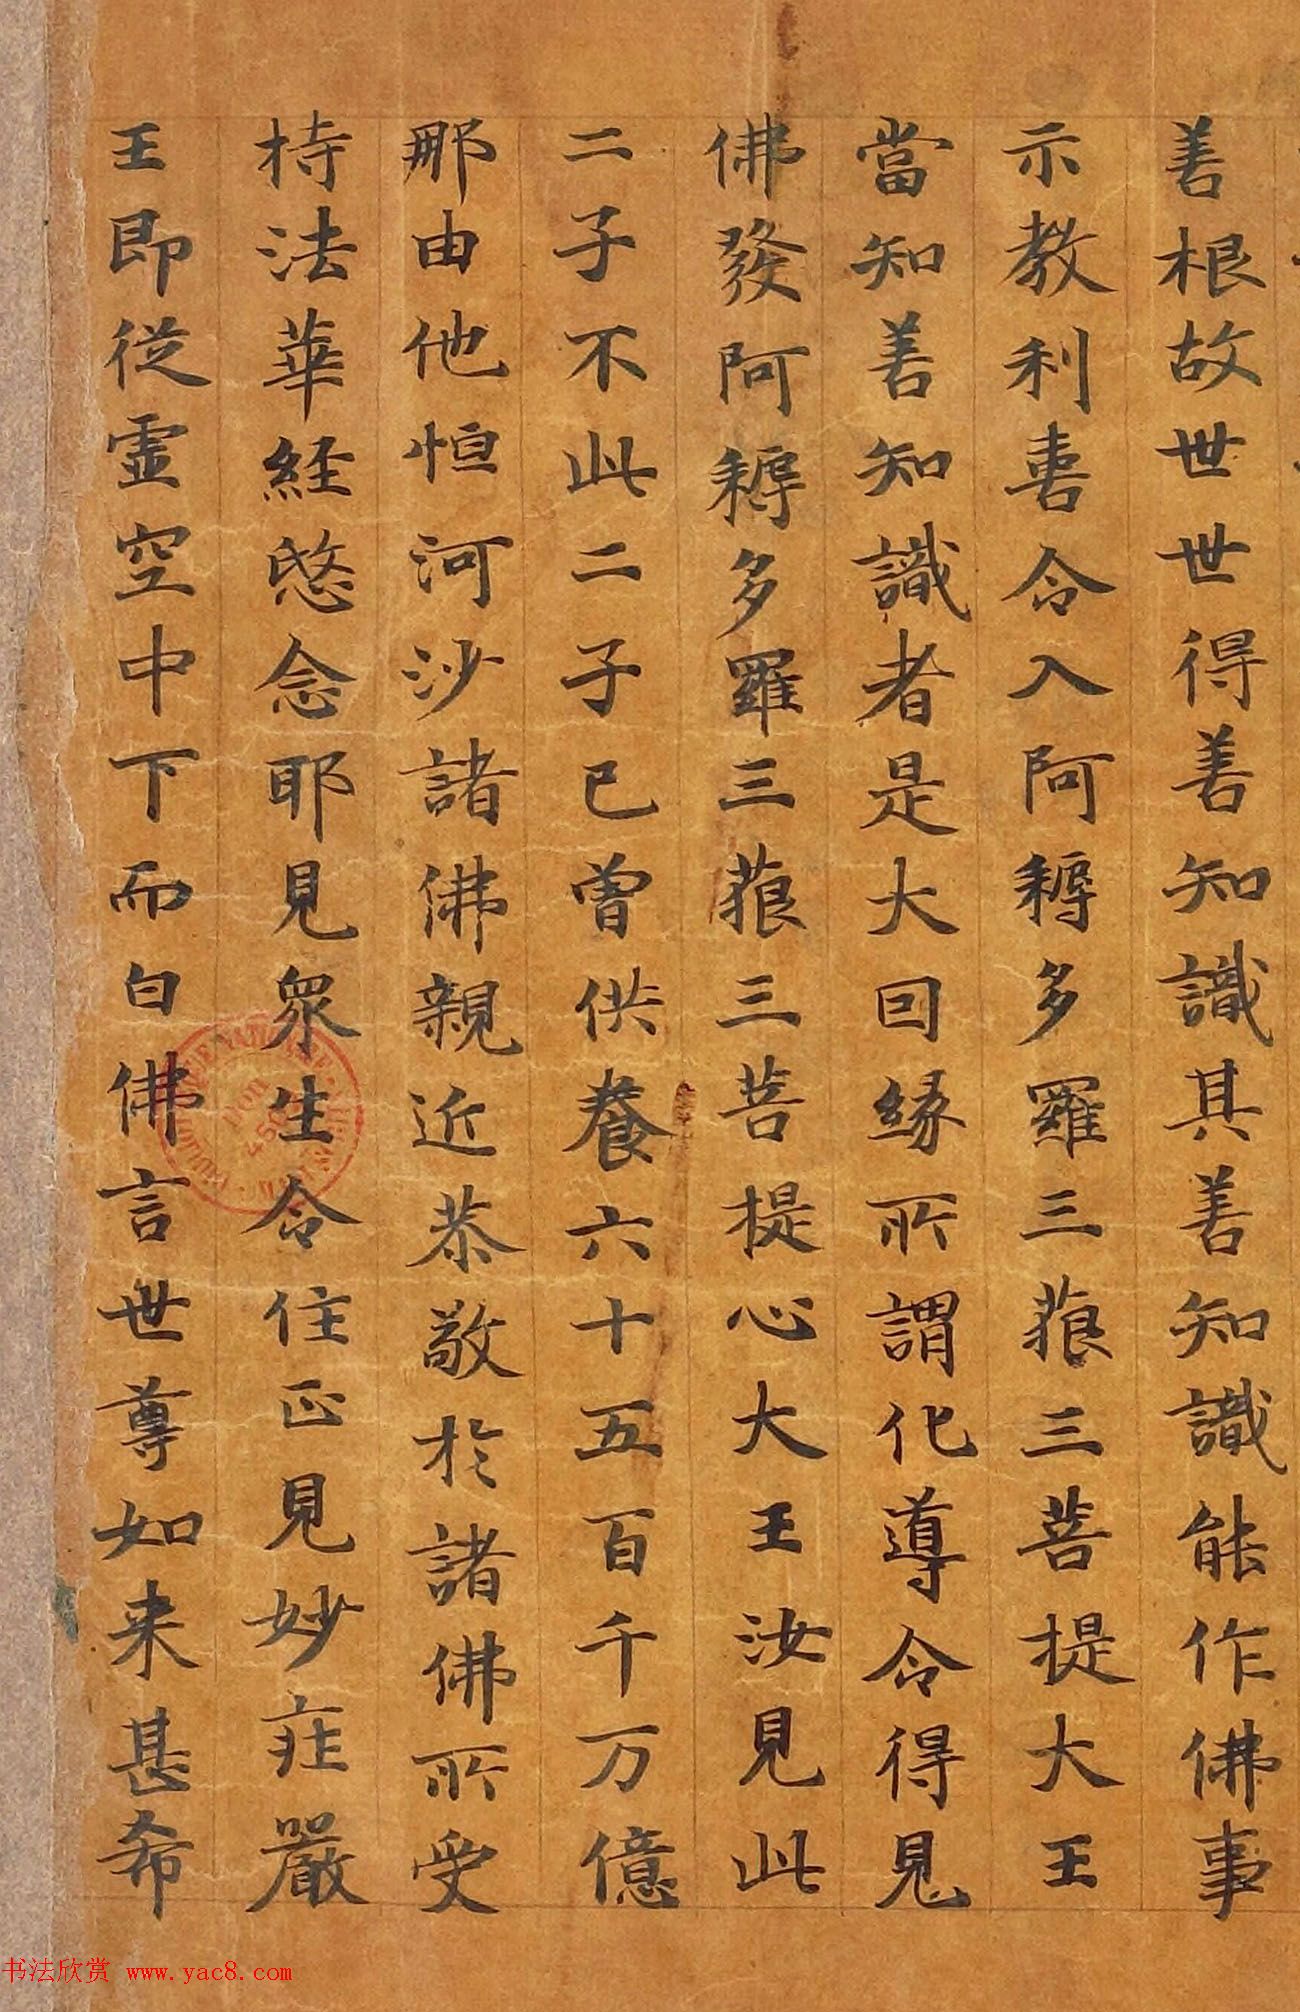 善根故世世得善知識其善知識能作佛事
示教利喜令入阿耨多羅三藐三菩提大王
當知善知識者是大因緣所謂化導令得見
佛發阿耨多羅三藐三菩提心大王汝見此
二子不此二子已曾供養六十五百千万億
那由他恒河沙諸佛親近恭敬於諸佛所受
持法華經愍念耶見眾生令住正見妙莊嚴
王即從虛空中下而白佛言世尊如来甚希
书法欣赏 www.yac8.com